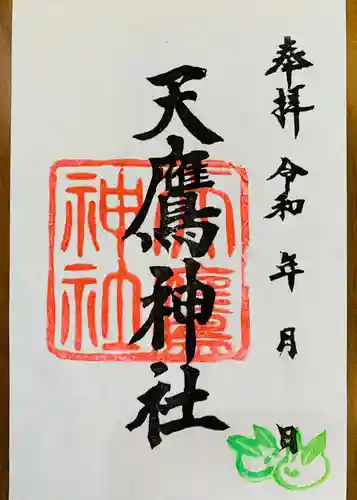 奉拝 令和 年 月 日
天鷹神社
天鷹神社